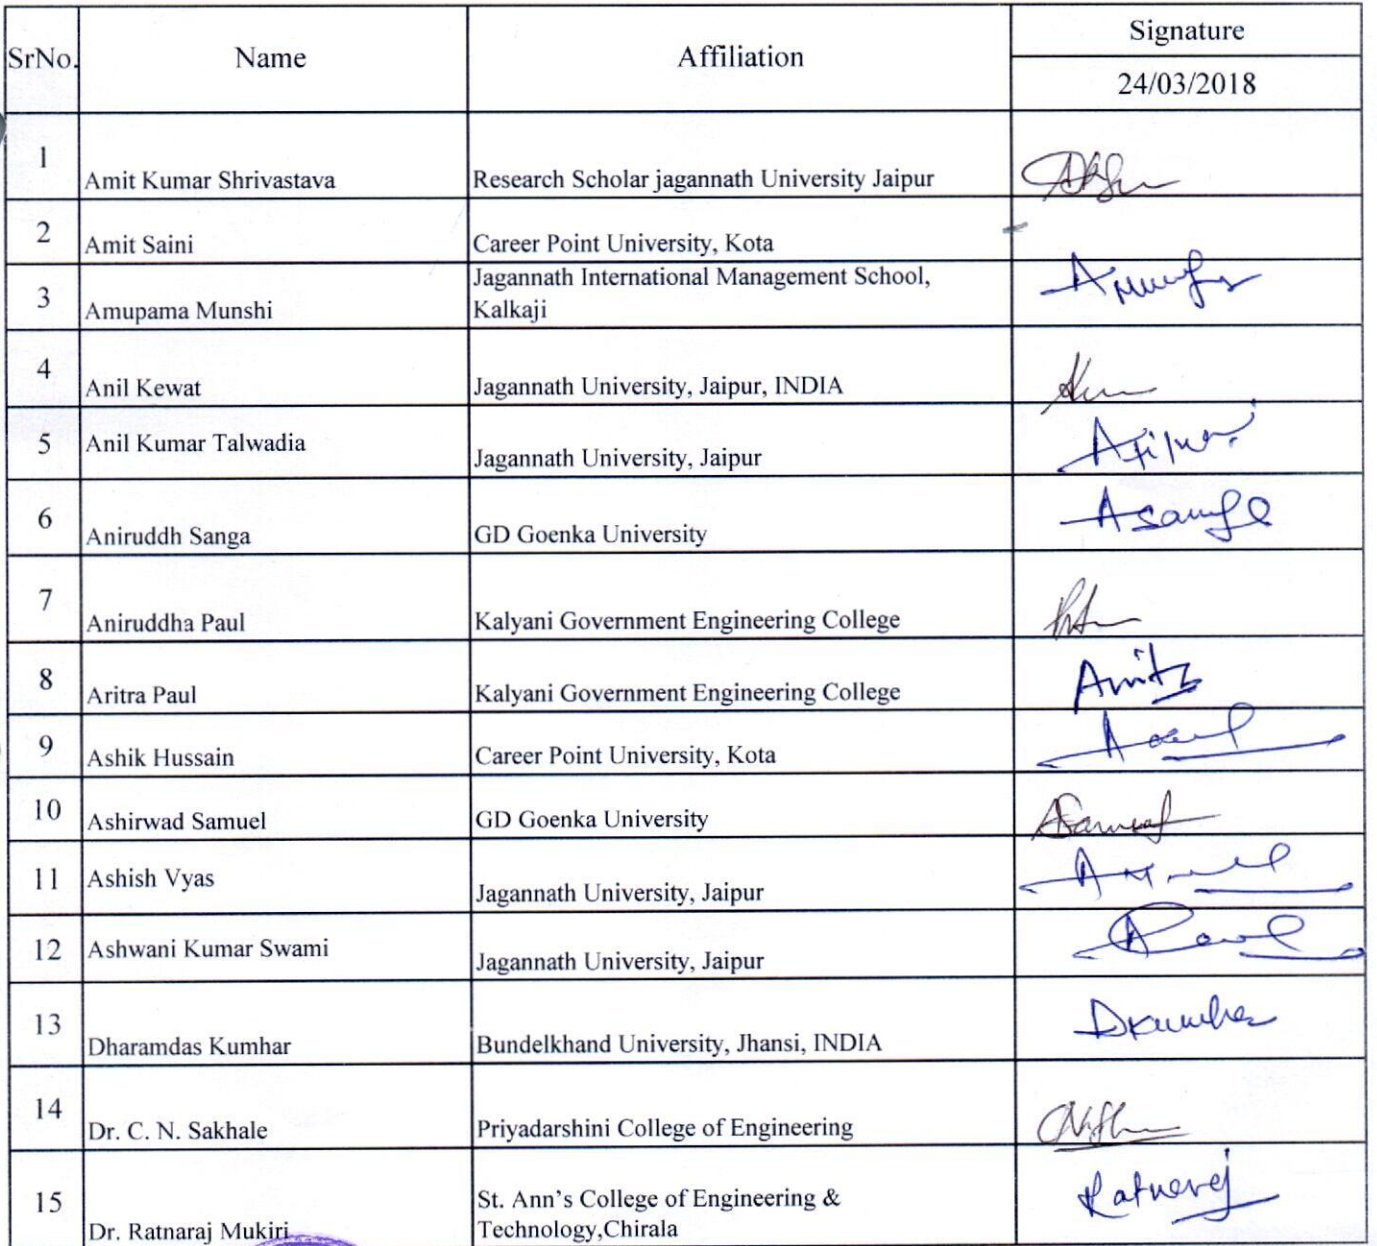 SrNo. Name Affiliation Signature
24/03/2018
1 Amit Kumar Shrivastava Research Scholar jagannath University Jaipur
2 Amit Saini Career Point University, Kota
3 Amupama Munshi Jagannath International Management School,
Kalkaji
4 Anil Kewat Jagannath University, Jaipur, INDIA
5 Anil Kumar Talwadia Jagannath University, Jaipur
6 Aniruddh Sanga GD Goenka University
7 Aniruddha Paul Kalyani Government Engineering College
8 Aritra Paul Kalyani Government Engineering College
9 Ashik Hussain Career Point University, Kota
10 Ashirwad Samuel GD Goenka University
11 Ashish Vyas Jagannath University, Jaipur
12 Ashwani Kumar Swami Jagannath University, Jaipur
13 Dharamdas Kumhar Bundelkhand University, Jhansi, INDIA
14 Dr. C. N. Sakhale Priyadarshini College of Engineering
15 Dr. Ratnaraj Mukiri St. Ann's College of Engineering &
Technology,Chirala
Ratnaraj